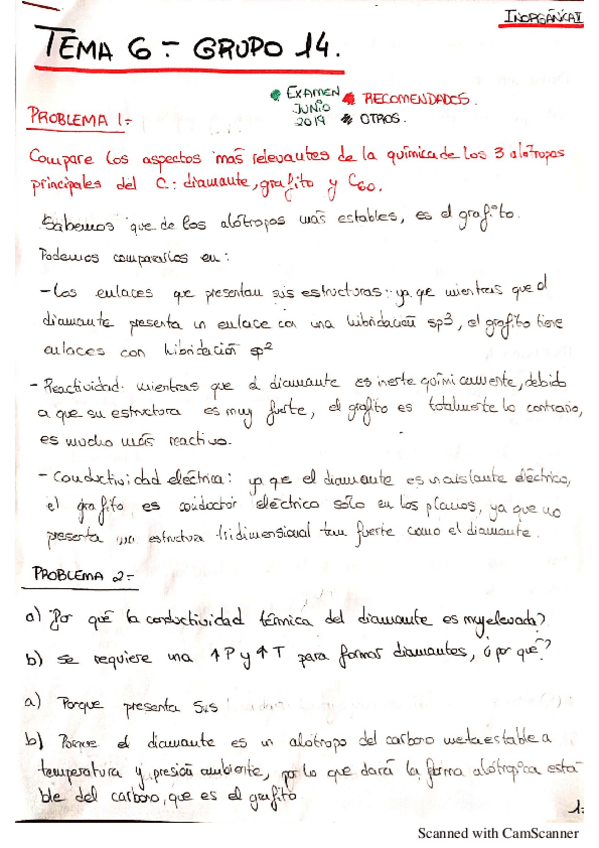 INORGÁNICA II
TEMA 6 - GRUPO 14.
EXAMEN JUNIO 2019
RECOMENDADOS.
OTROS.
PROBLEMA 1:-
Compare los aspectos más relevantes de la química de los 3 alótropos
principales del C: diamante, grafito y C60.
Sabemos que de los alótropos más estables, es el grafito.
Podemos compararlos en:
- Los enlaces que presentan sus estructuras: ya que mientras que el
diamante presenta un enlace con una hibridación sp3, el grafito tiene
enlaces con hibridación sp2
- Reactividad: mientras que el diamante es inerte químicamente, debido
a que su estructura es muy fuerte, el grafito es totalmente lo contrario,
es mucho más reactivo.
- Conductividad eléctrica: ya que el diamante es un aislante eléctrico,
el grafito es conductor eléctrico sólo en los planos, ya que no
presenta una estructura tridimensional tan fuerte como el diamante.
PROBLEMA 2:-
a) ¿Por qué la conductividad térmica del diamante es muy elevada?
b) se requiere una ↑P y ↑T para formar diamantes, ¿por qué?
a) Porque presenta sus
b) Porque el diamante es un alótropo del carbono metaestable a
temperatura y presión ambiente, por lo que dará la forma alotrópica esta
ble del carbono, que es el grafito.
1.
Scanned with CamScanner